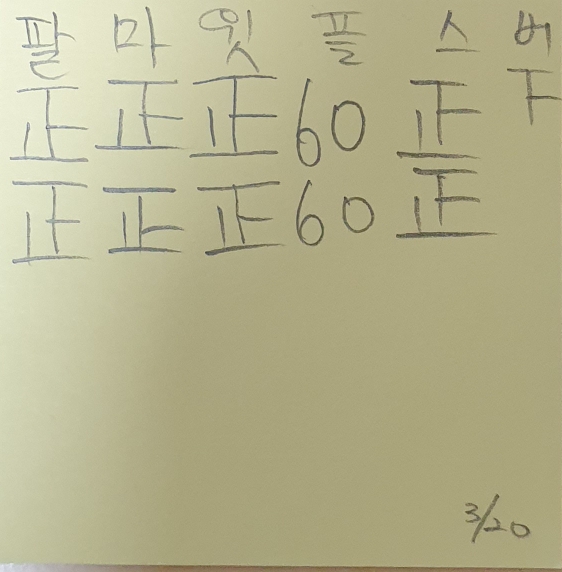 팔 마 윗 플 스 버
正 正 正 60 正 下
正 正 正 60 正
3/20